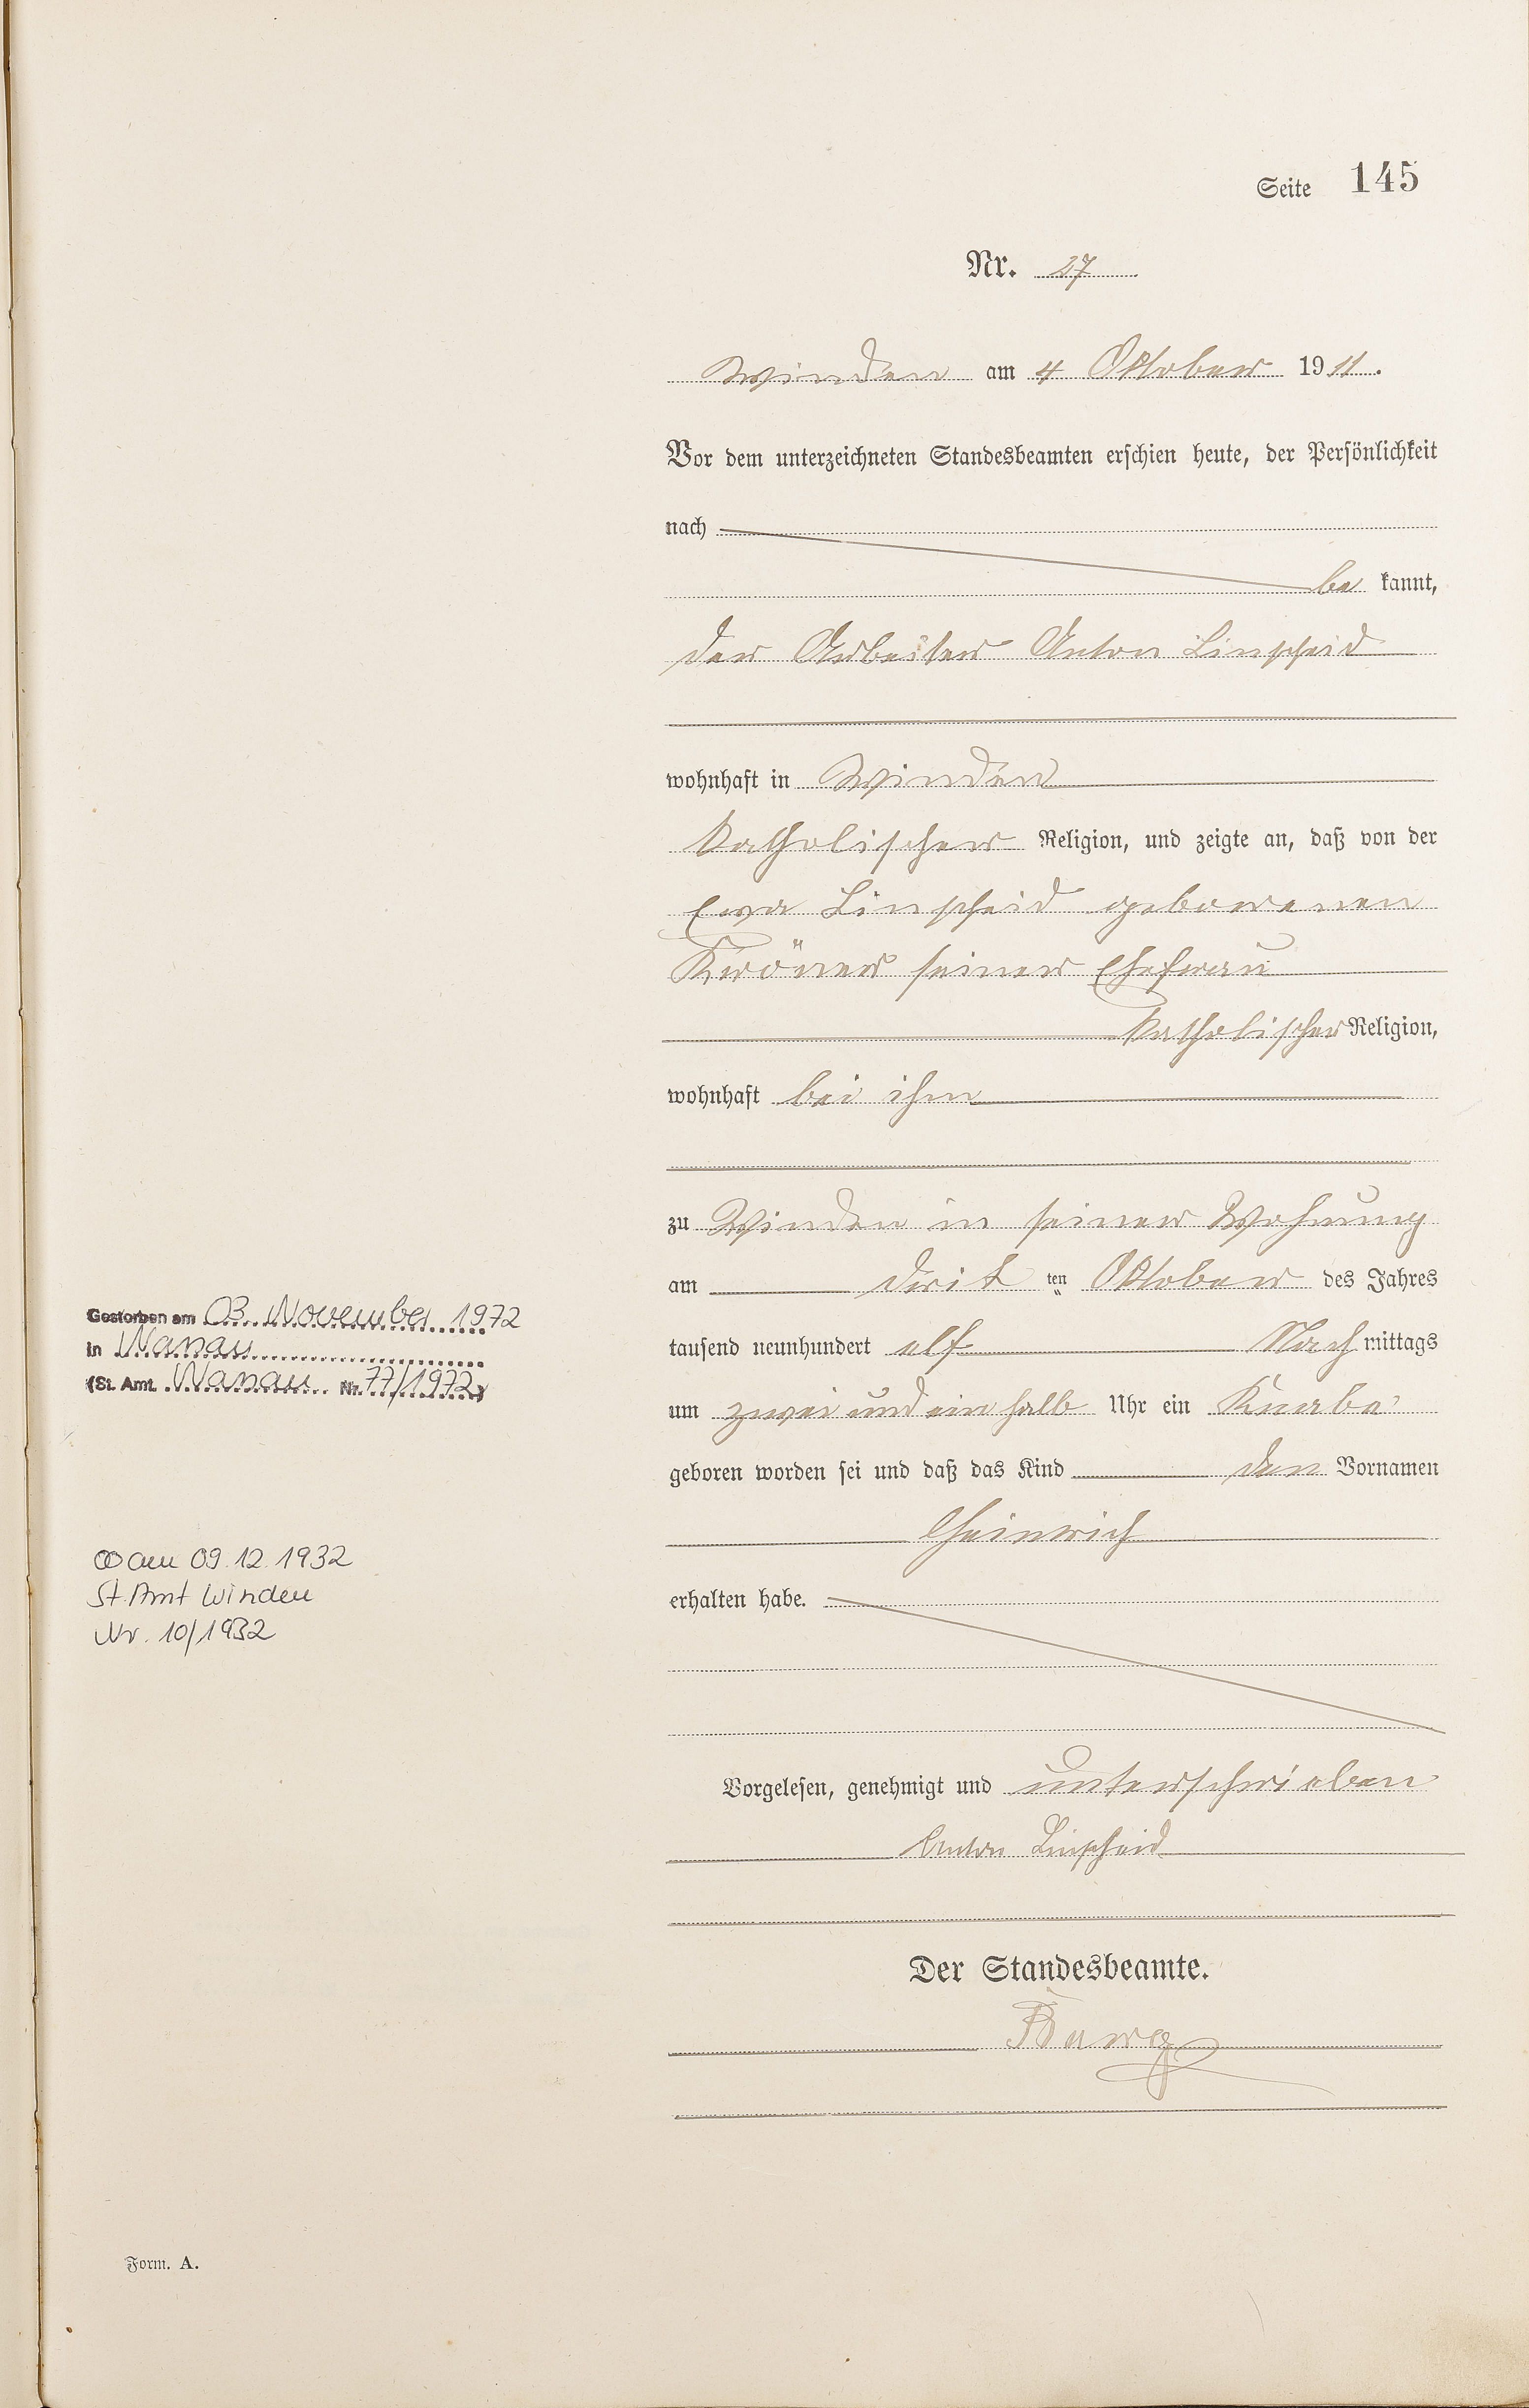 Seite 145
Nr. 27
Winden am 4 Oktober 1911.
Vor dem unterzeichneten Standesbeamten erschien heute, der Persönlichkeit
nach
be kannt,
der Arbeiter Anton Linscheid
wohnhaft in Winden
katholischer Religion, und zeigte an, daß von der
Eva Linscheid geborenen
Kröner seiner Ehefrau
katholischer Religion,
wohnhaft bei ihm
zu Winden in seiner Wohnung
am drit ten Oktober des Jahres
tausend neunhundert elf Nach mittags
um zwei und ein halb Uhr ein Knabe
geboren worden sei und daß das Kind den Vornamen
Heinrich
erhalten habe.
Vorgelesen, genehmigt und unterschrieben
Anton Linscheid
Der Standesbeamte.
Gestorben am 03. November 1972
in Nanau
(St. Amt. Nanau Nr. 77/1972)
∞ am 09.12.1932
St. Amt Winden
Nr. 10/1932
Form. A.